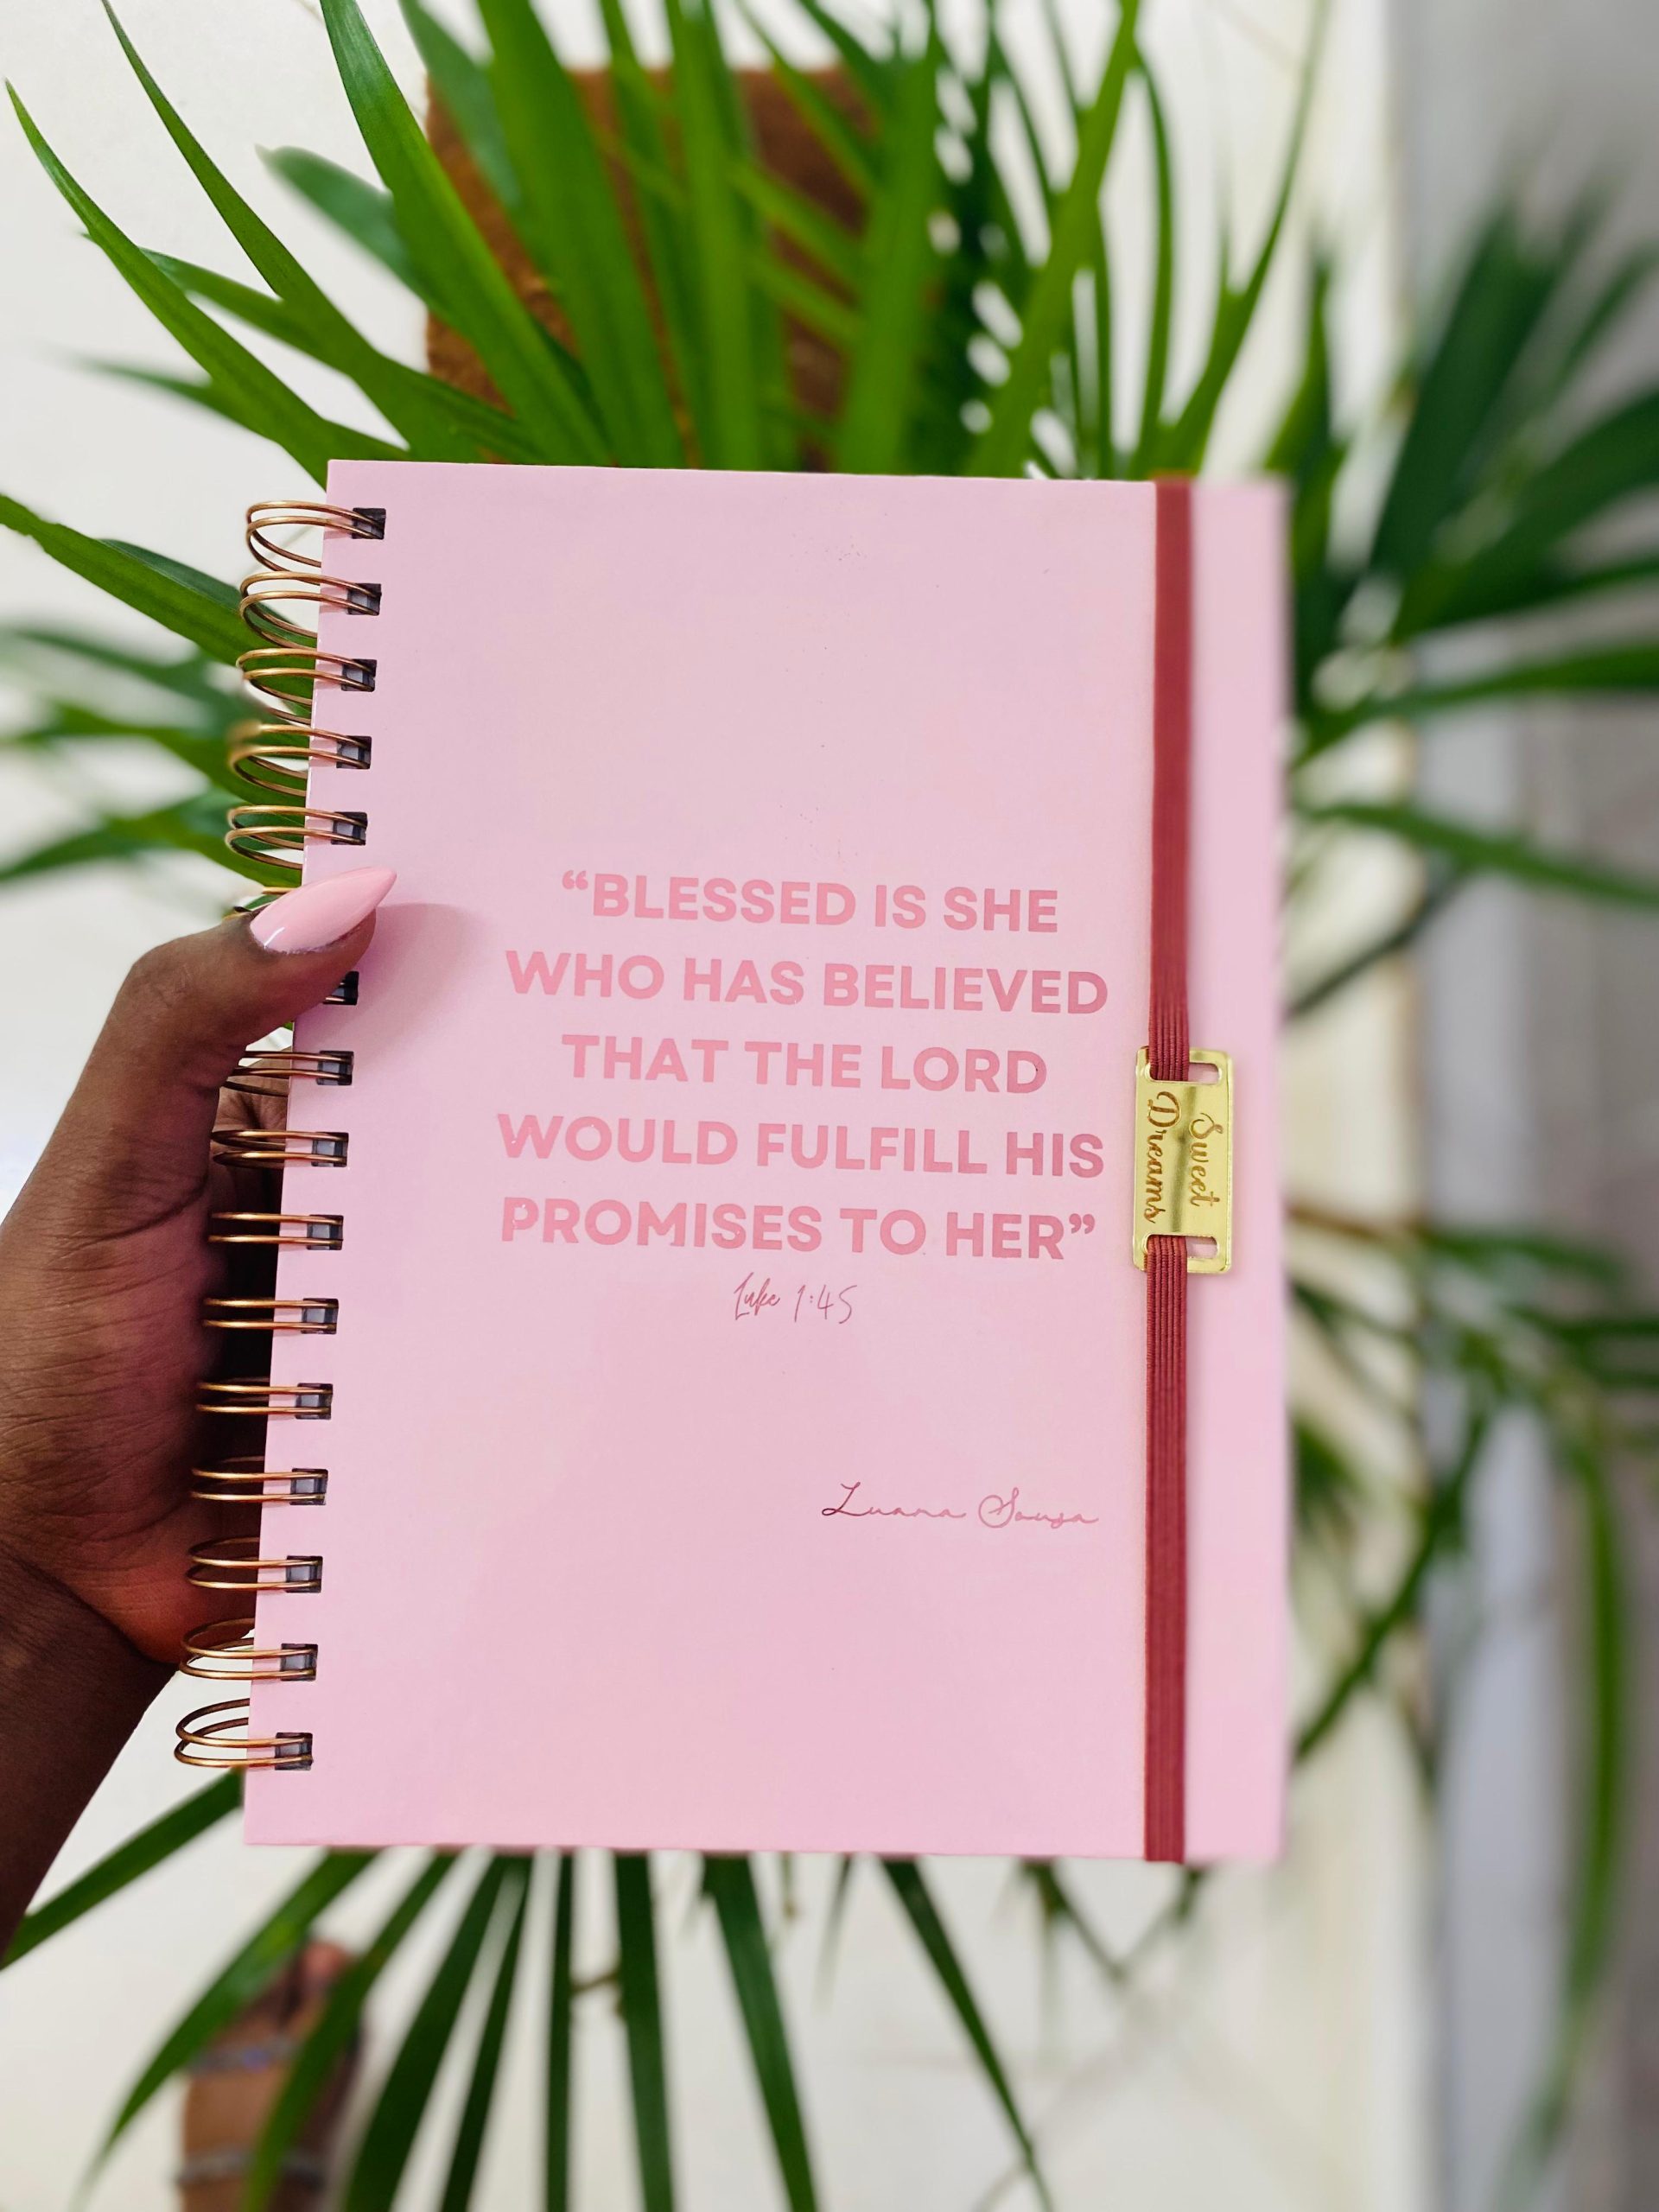 “BLESSED IS SHE
WHO HAS BELIEVED
THAT THE LORD
WOULD FULFILL HIS
PROMISES TO HER”
Luke 1:45
Luana Sousa
Sweet
Dreams